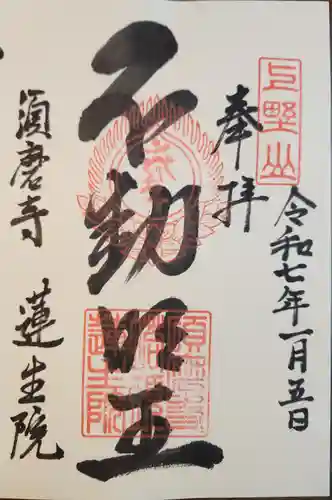 上野山
奉拝
令和七年一月五日
不動明王
須磨寺 蓮生院